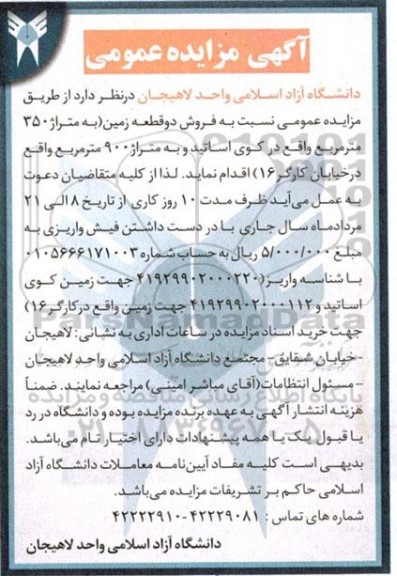 آگهی مزایده عمومی
دانشگاه آزاد اسلامی واحد لاهیجان درنظر دارد از طریق
مزایده عمومی نسبت به فروش دوقطعه زمین(به متراژ ۳۵۰
مترمربع واقع در کوی اساتید و به متراژ ۹۰۰ مترمربع واقع
درخیابان کارگر ۱۶) اقدام نماید. لذا از کلیه متقاضیان دعوت
به عمل می‌آید ظرف مدت ۱۰ روز کاری از تاریخ ۸ الی ۲۱
مردادماه سال جاری با در دست داشتن فیش واریزی به
مبلغ ۵/۰۰۰/۰۰۰ ریال به حساب شماره ۰۱۰۵۶۶۶۱۷۱۰۰۳
با شناسه واریز (۴۱۹۲۹۹۰۲۰۰۰۲۲۰ جهت زمین کوی
اساتید و ۴۱۹۲۹۹۰۲۰۰۰۱۱۲ جهت زمین واقع درکارگر ۱۶)
جهت خرید اسناد مزایده در ساعات اداری به نشانی: لاهیجان
-خیابان شقایق- مجتمع دانشگاه آزاد اسلامی واحد لاهیجان
-مسئول انتظامات(آقای مباشر امینی) مراجعه نمایند. ضمناً
هزینه انتشار آگهی به عهده برنده مزایده بوده و دانشگاه در رد
یا قبول یک یا همه پیشنهادات دارای اختیار تام می‌باشد.
بدیهی است کلیه مفاد آیین‌نامه معاملات دانشگاه آزاد
اسلامی حاکم بر تشریفات مزایده می‌باشد.
شماره های تماس : ۴۲۲۲۹۰۸۱-۴۲۲۲۲۹۱۰
دانشگاه آزاد اسلامی واحد لاهیجان